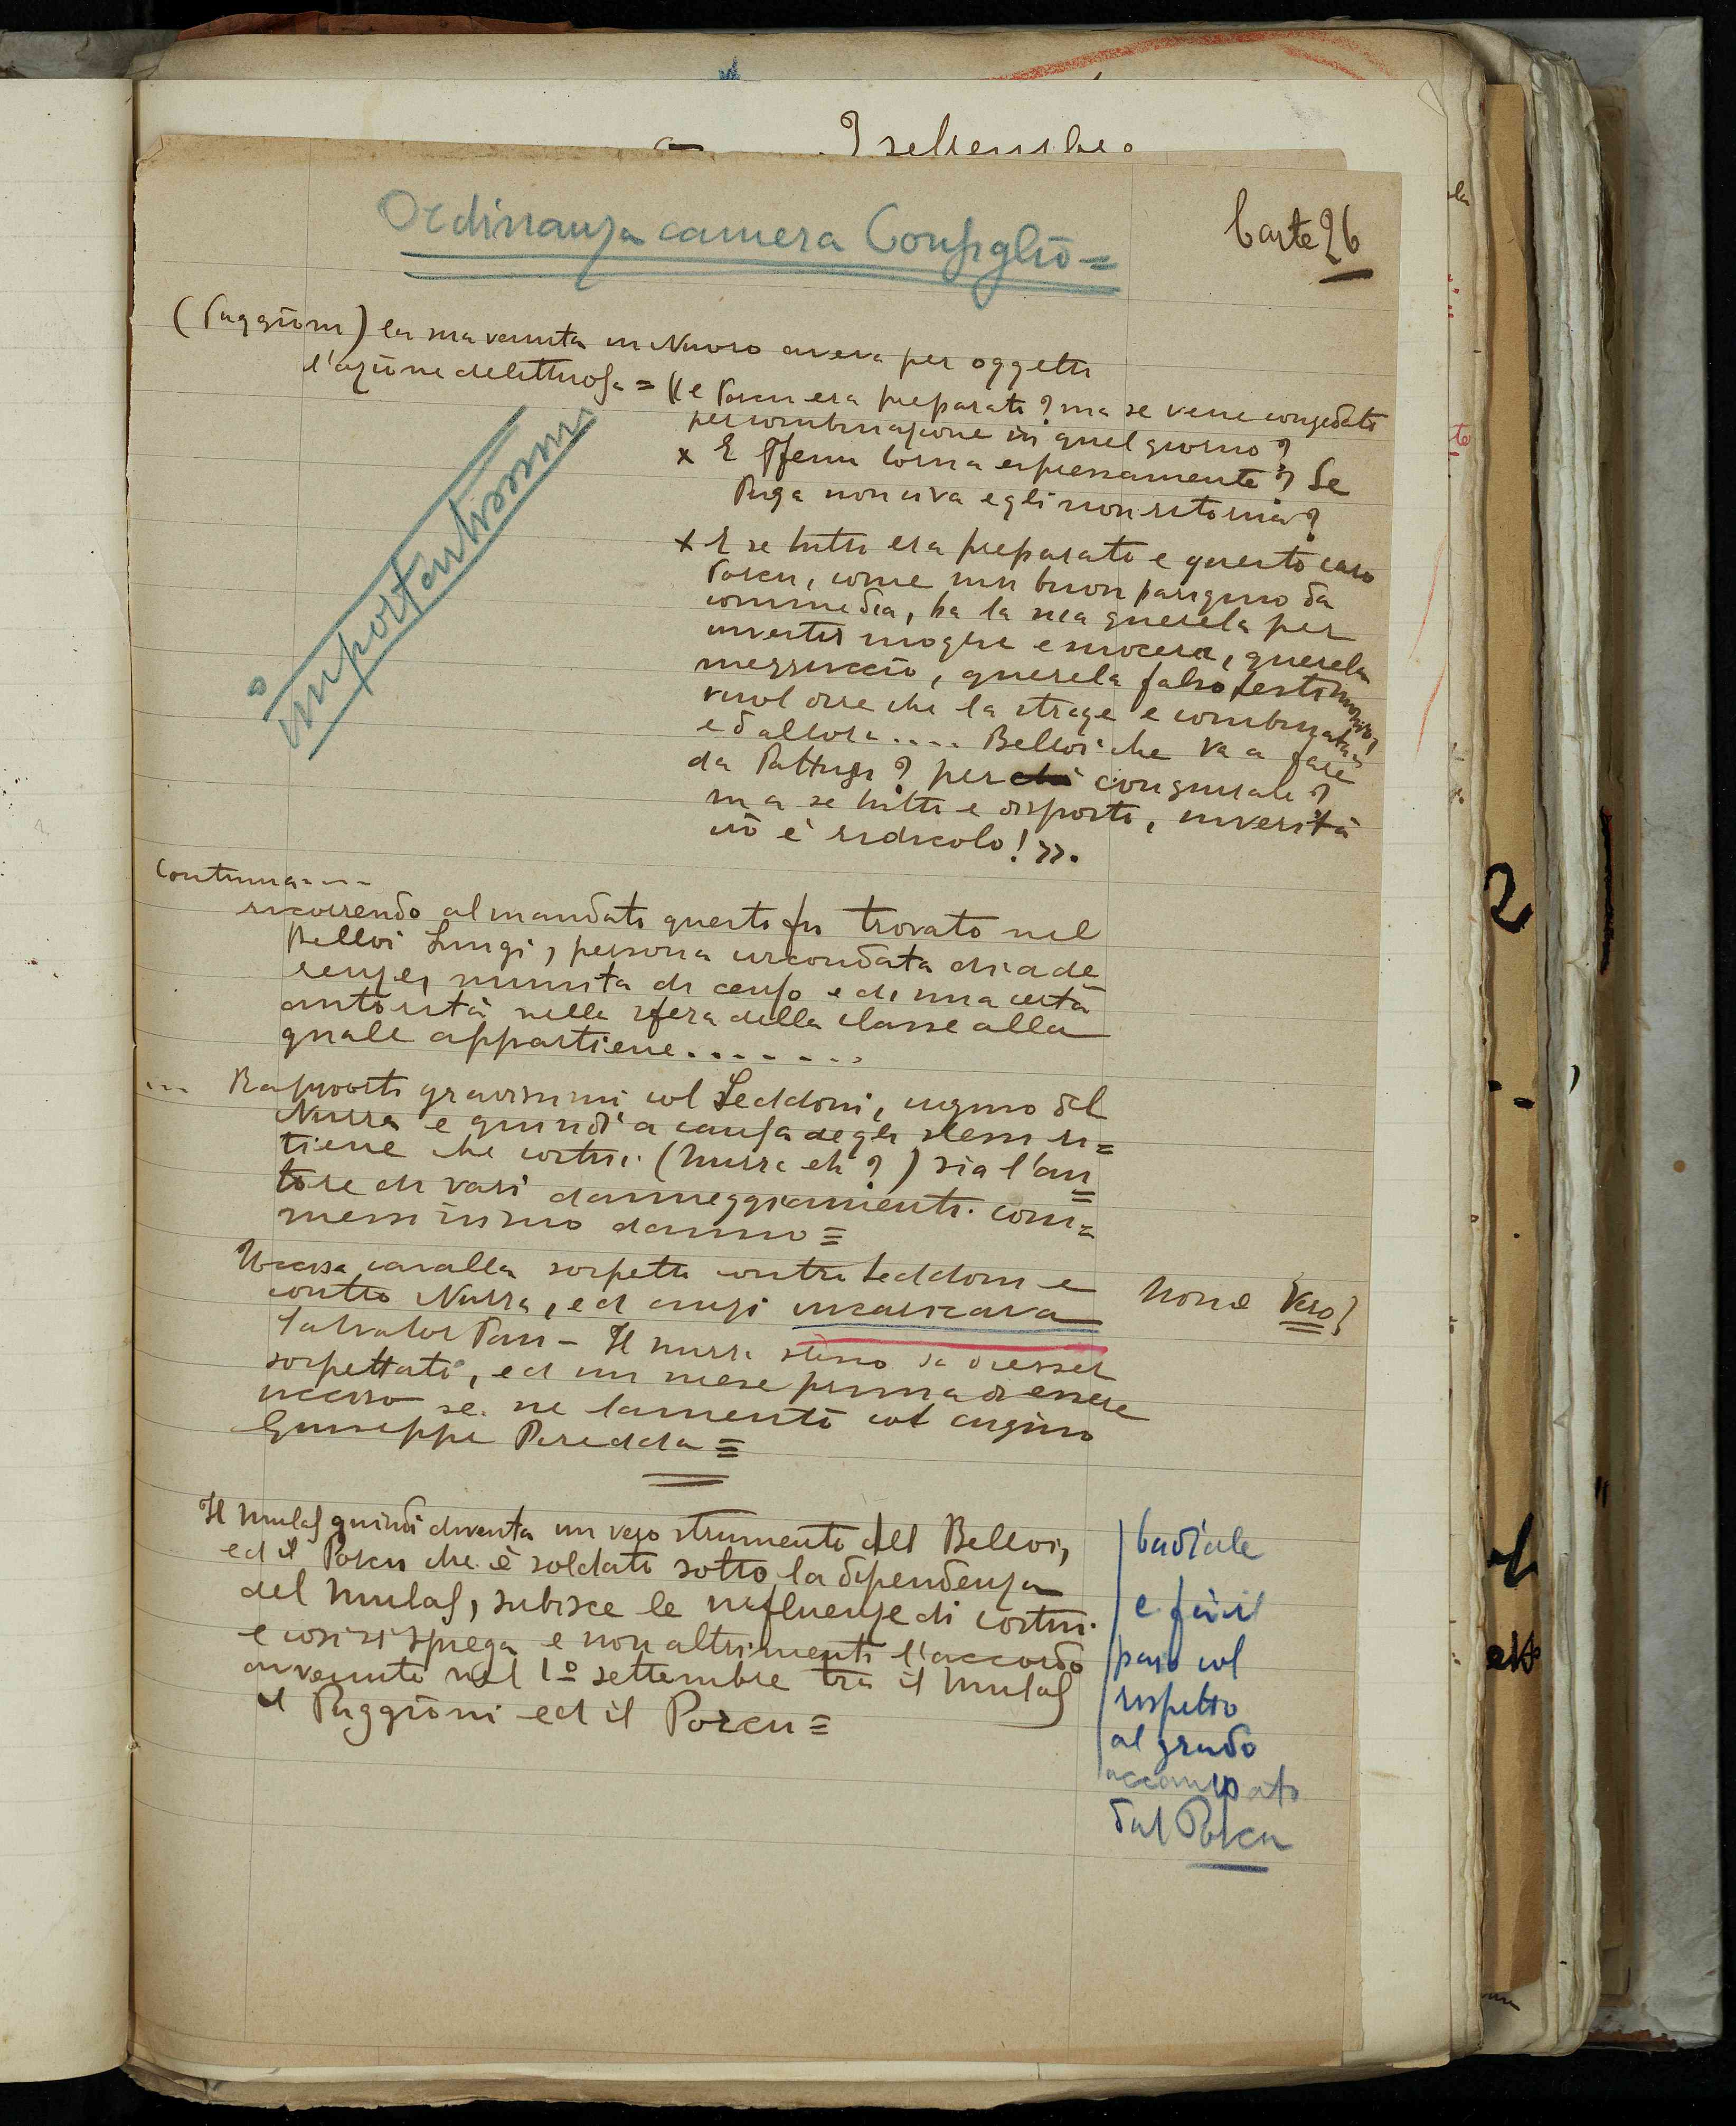 7 settembre
Ordinanza camera Consiglio =
Carte 26
(Puggioni) la sua venuta in Nuoro aveva per oggetto
l'azione delittuosa = (( e Porcu era preparato? ma se venne congedato
per combinazione in quel giorno?
x E torna espressamente? Se
Puga non viva egli non ritorna?
importantissimi
x E se tutto era preparato e questo caro
Porcu, come un buon parigino da
commedia, ha la sua querela per
moglie e suocera, querela
messuccio, querela falso testimonio!
vuol dire che la strage è combinata
ed allora .... Belloi che va a fare
da Pattusi? per congiurare?
ma se tutto è disposto, in verità
ciò è ridicolo! >>.
Continua ----
ricorrendo al mandato questo fu trovato nel
Belloi Luigi, persona circondata di ade
renze, munita di censo e di una certa
autorità nella sfera della classe alla
quale appartiene . . . . . . .
... Rapporti gravissimi col Seddoni, cugino del
Nurra e quindi a causa degli stessi ri=
tiene che costui (Nurra eh?) sia l'au
=
tore di vari danneggiamenti com=
messi in suo danno =
Uccisa cavalla sospetti contro Seddoni e
contro Nurra, ed anzi incaricava
Salvator Pau - Il Nurra stesso sa d'esser
sospettato, ed un mese prima di essere
ucciso se ne lamentò col cugino
Giuseppe Paredda =
Non è vero?
Il Mulas quindi diventa un vero strumento del Belloi,
ed il Porcu che è soldato sotto la dipendenza
del Mulas, subisce le influenze di costui.
e così si spiega e non altrimenti l'accordo
avvenuto nel 1º settembre tra il Mulas
il Puggioni ed il Porcu =
badiale
e
col
rispetto
al grado
accampato
dal Porcu